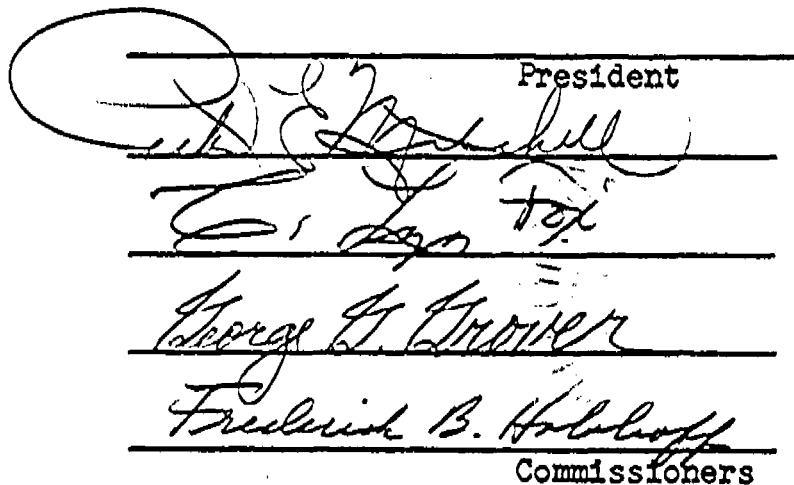 President
E. Mitchell
E. Lyn Fox
George G. Grover
Frederick B. Holoboff
Commissioners